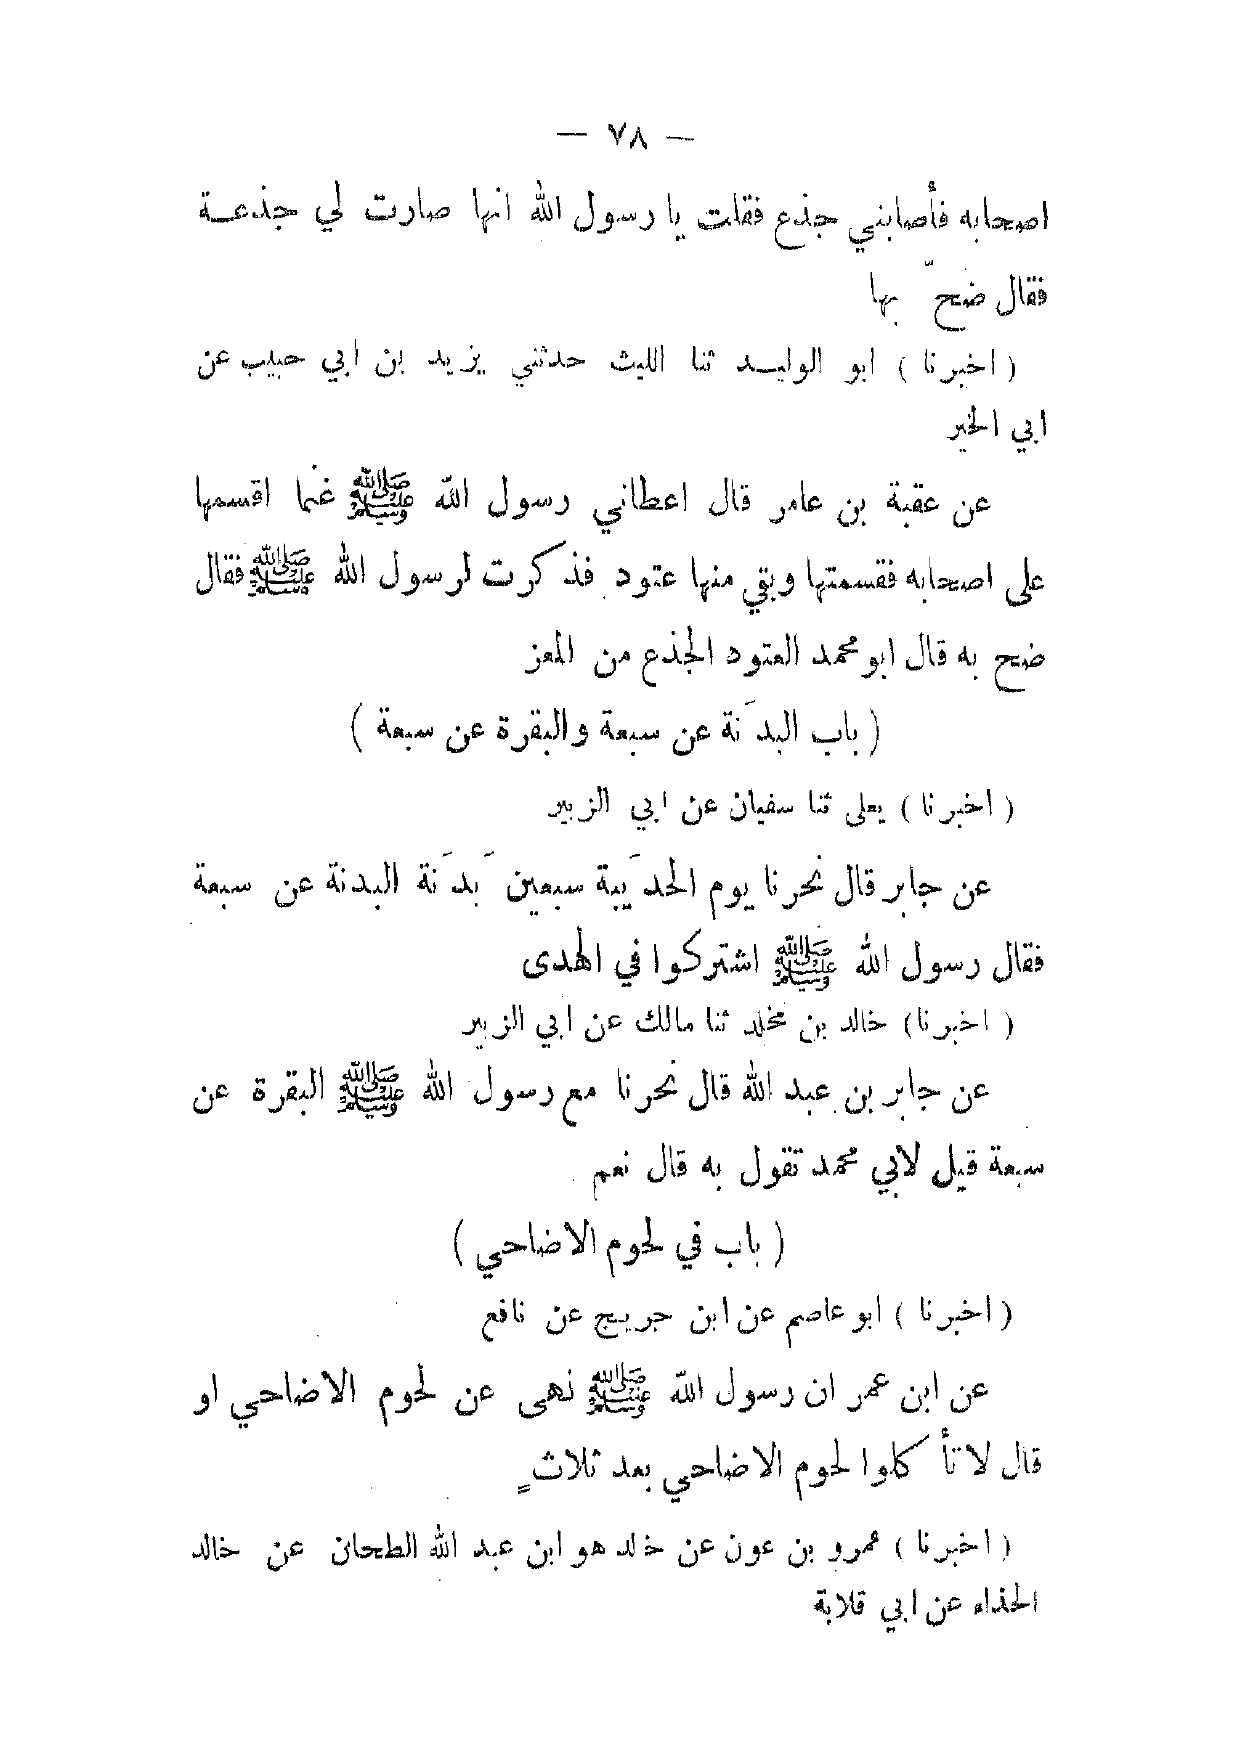 — ٧٨ —
اصحابه فأصابني جذع فقلت يا رسول الله انها صارت لي جذعة
فقال ضحّ بها
( اخبرنا ) ابو الوليد ثنا الليث حدثني يزيد بن ابي حبيب عن
ابي الخير
عن عقبة بن عامر قال اعطاني رسول الله ﷺ غنما اقسمها
على اصحابه فقسمتها وبقي منها عتود فذكرت لرسول الله ﷺ فقال
ضح به قال ابو محمد العتود الجذع من المعز
( باب البدَنة عن سبعة والبقرة عن سبعة )
( اخبرنا ) يعلى ثنا سفيان عن ابي الزبير
عن جابر قال نحرنا يوم الحدَيبة سبعين بَدَنة البدنة عن سبعة
فقال رسول الله ﷺ اشتركوا في الهدى
( اخبرنا ) خالد بن مخلد ثنا مالك عن ابي الزبير
عن جابر بن عبد الله قال نحرنا مع رسول الله ﷺ البقرة عن
سبعة قيل لابي محمد تقول به قال نعم
( باب في لحوم الاضاحي )
( اخبرنا ) ابو عاصم عن ابن جريج عن نافع
عن ابن عمر ان رسول الله ﷺ نهى عن لحوم الاضاحي او
قال لا تأكلوا لحوم الاضاحي بعد ثلاثٍ
( اخبرنا ) عمرو بن عون عن خالد هو ابن عبد الله الطحان عن خالد
الحذاء عن ابي قلابة